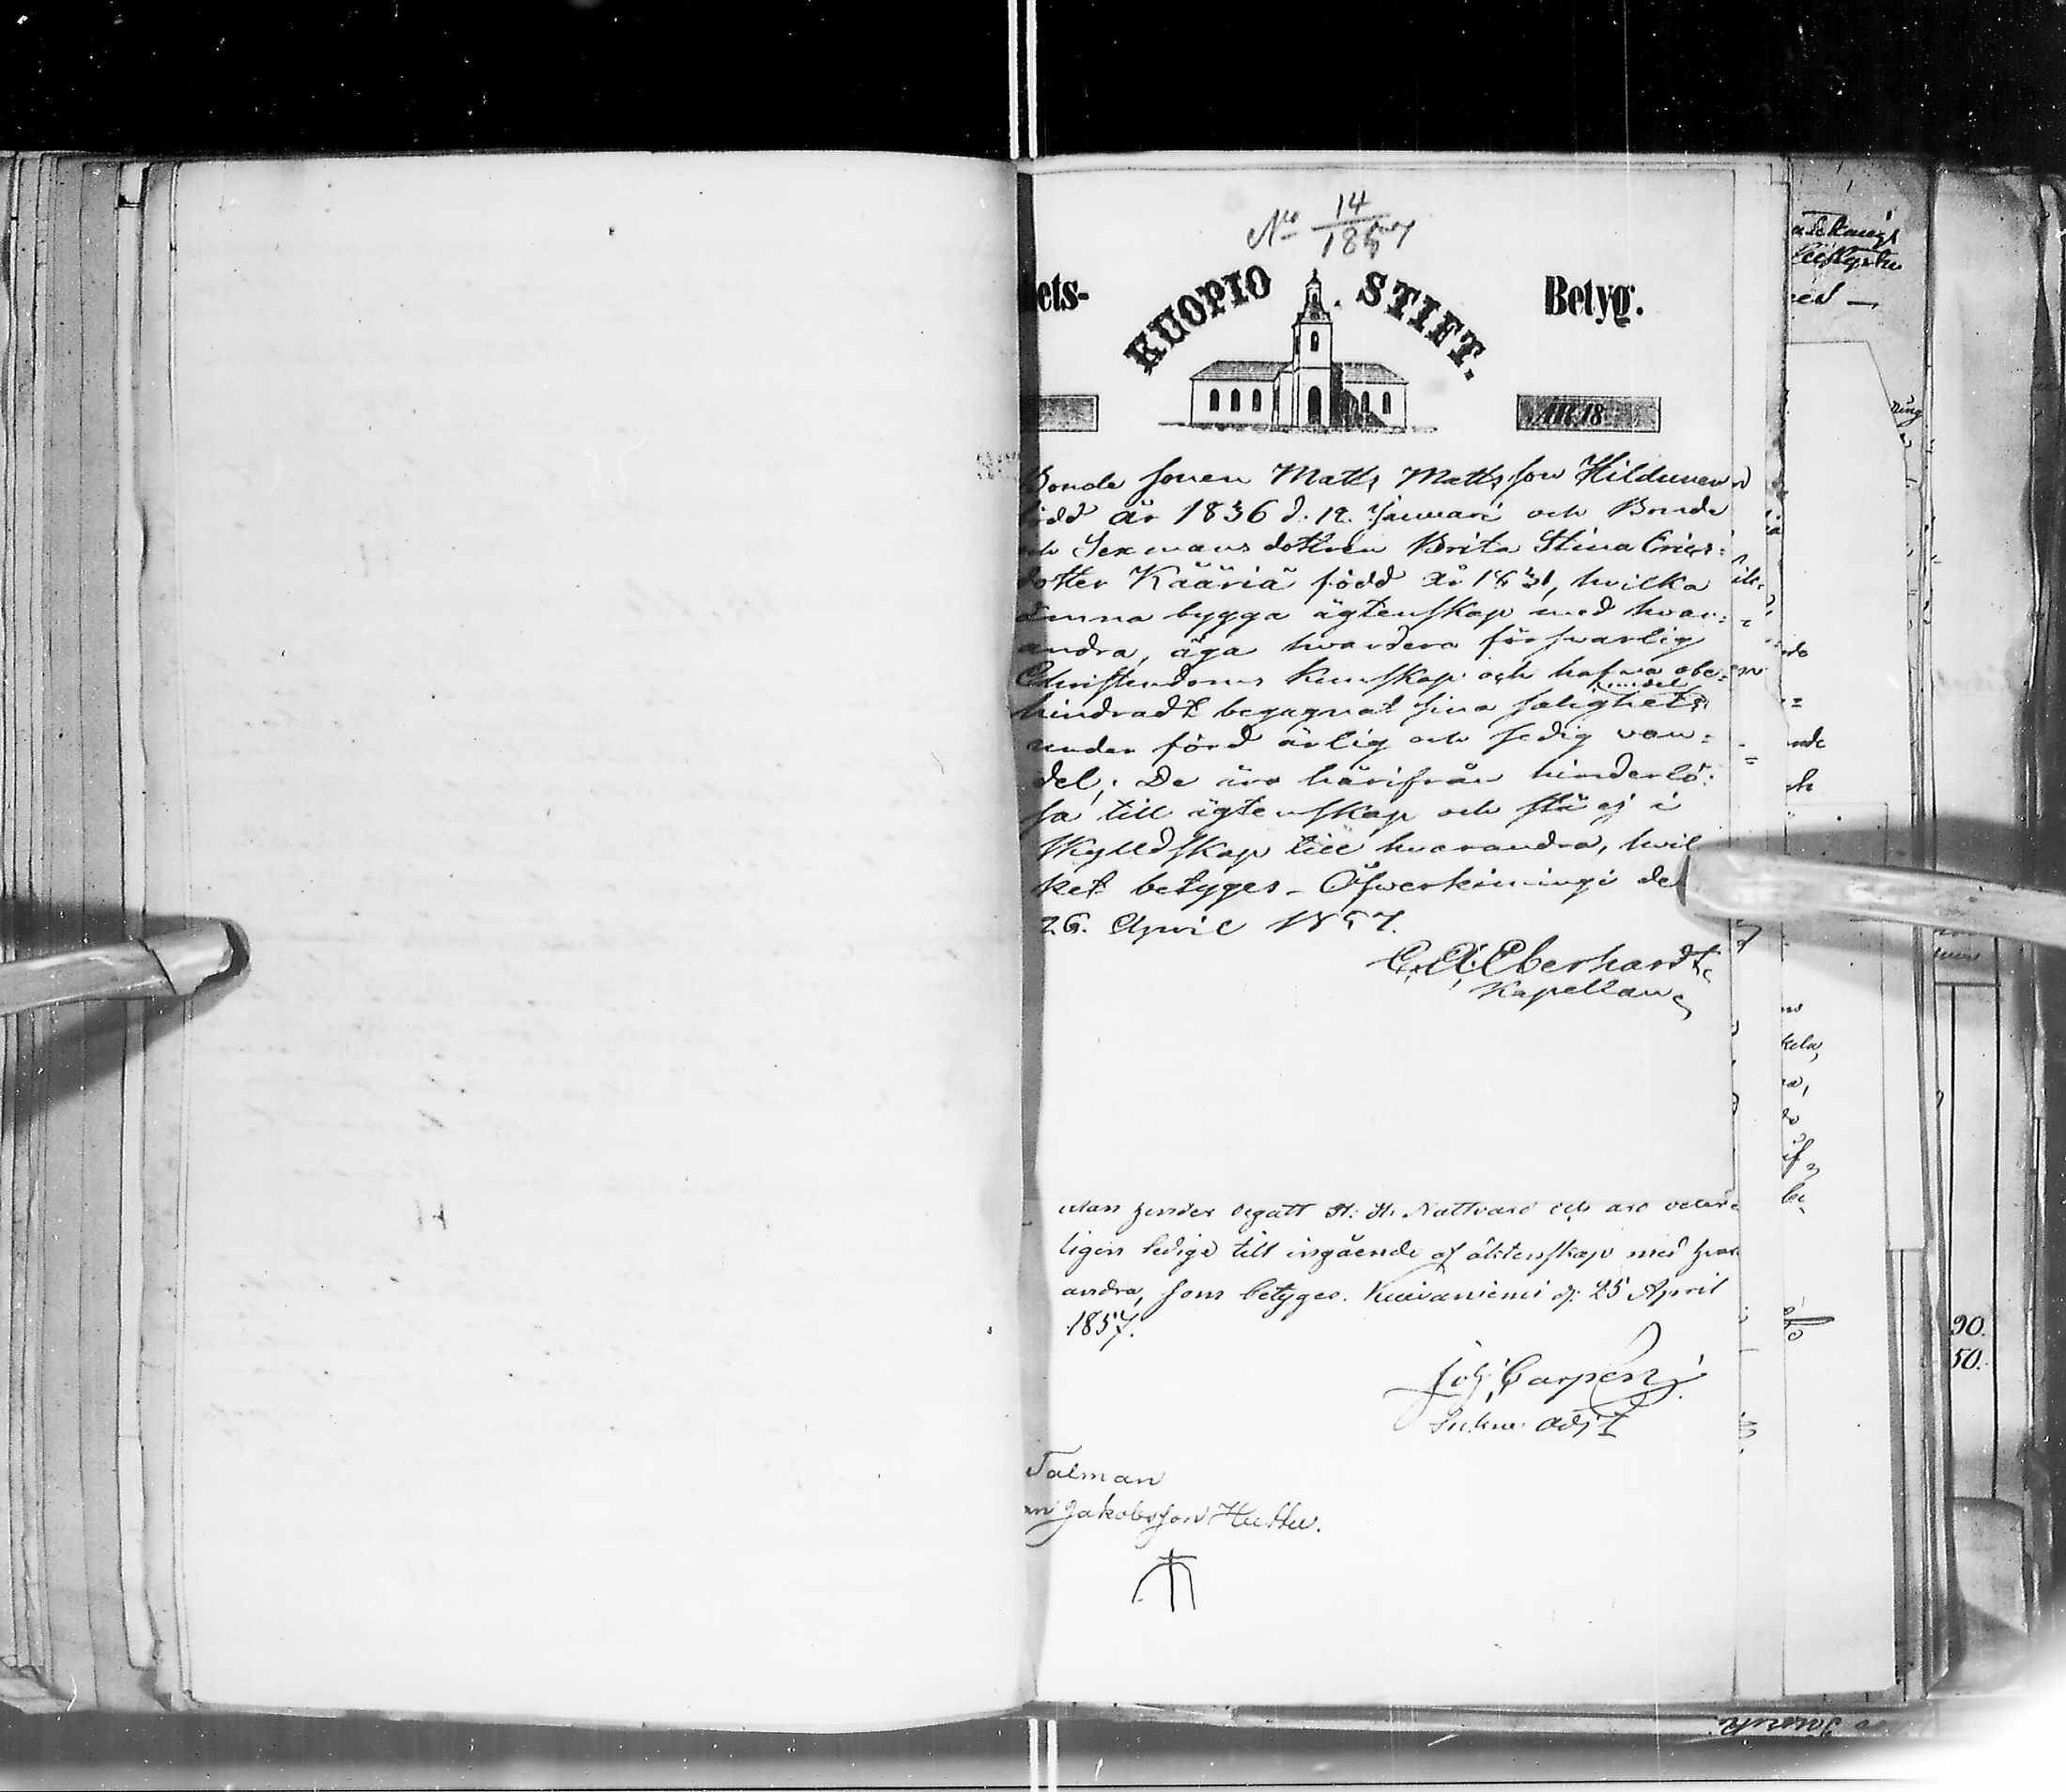 No 14/1857
ets-
KUOPIO STIFT.
Betyg.
ÅR 18
Bonde sonen Matts Mattsson Hildunen
född år 1836 d. 12. Januari och Bonde
och Sexmansdottren Brita Stina Erics:
dotter Kääriä född år 1831, hvilka
ämna bygga ägtenskap med hvar:
andra, äga hvardera förswarlig
Christendoms kunskap och hafwa obe:
hindradt begagnat sina salighets
medel
under förd ärlig och sedig van:
del; De äro härifrån hinderlö:
sa till ägtenskap och stå ej i
skyldskap till hvarandra, hvil
ket betyges - Öfwerkiimingi den
26. April 1857.
C. A. Eberhardt
Kapellan
utan hinder begått H. H. Nattvard och äro veter
ligen ledige till ingående af äktenskap med hvar
andra, som betyges. Kuivaniemi d. 25 April
1857.
Joh. Carpen
Sockne Adjt
Talman
Jakobsson Huttu.